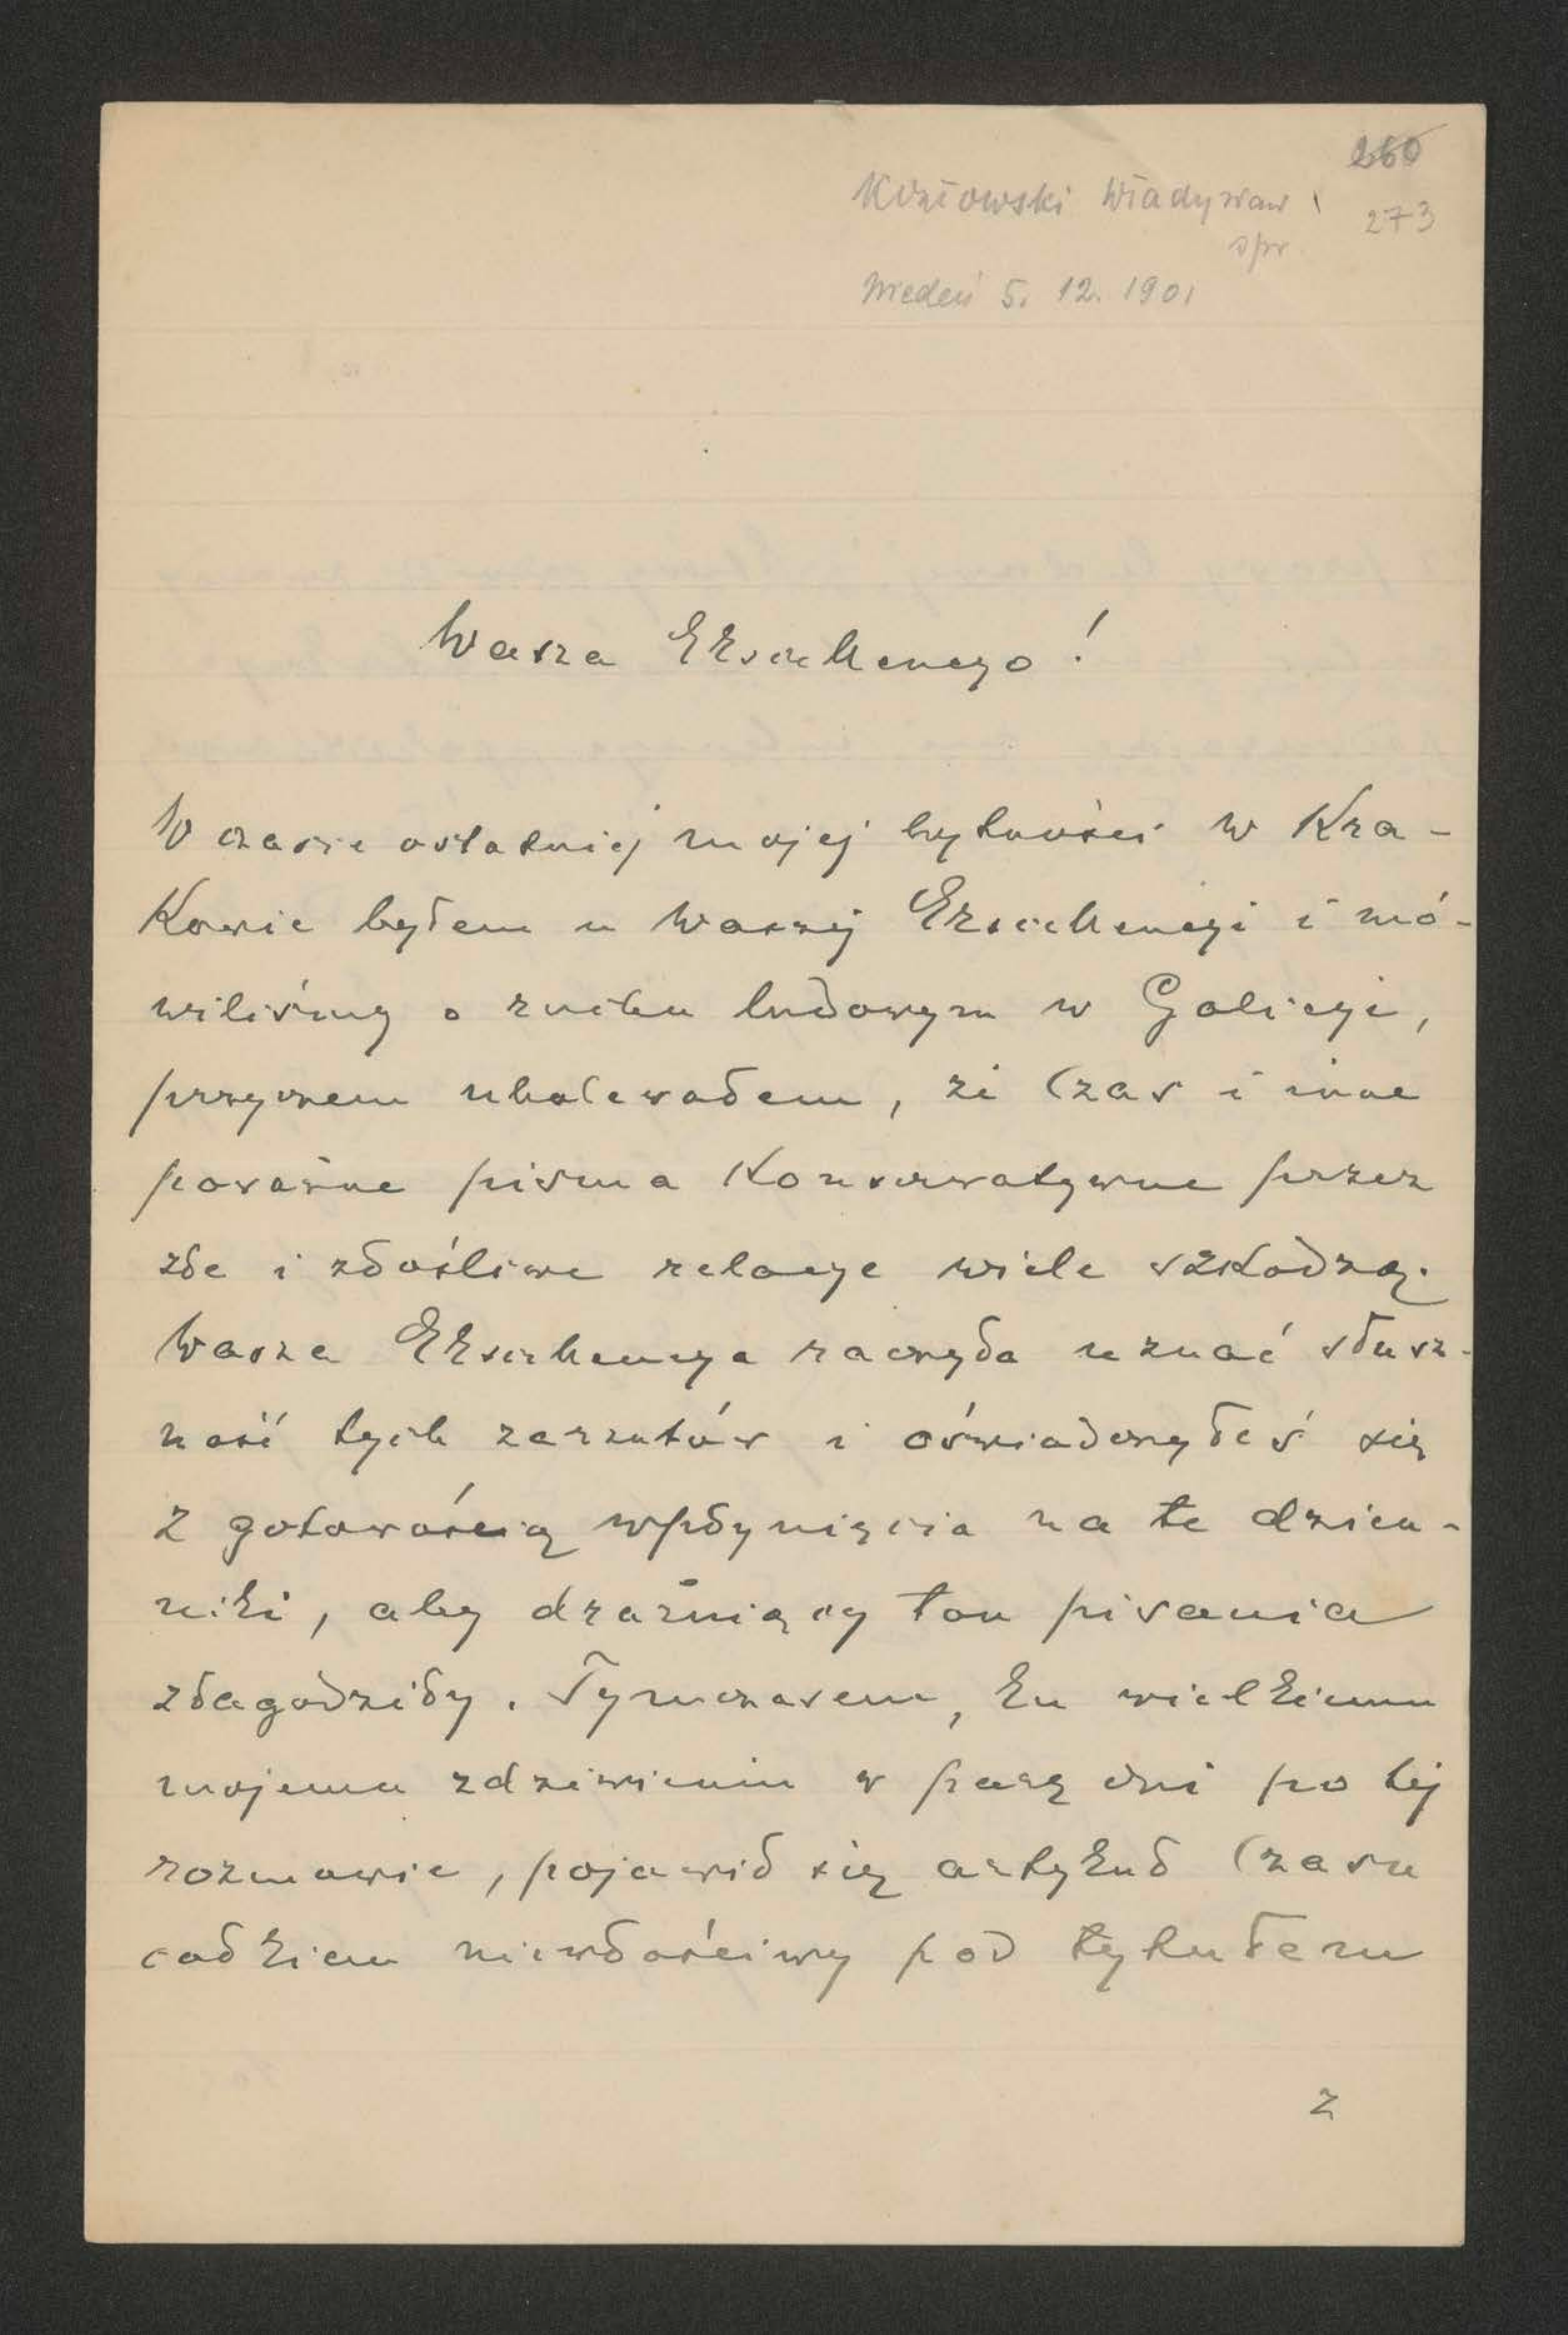 260
Kozłowski Władysław
273
spr.
Wiedeń 5. 12. 1901
Wasza Ekscellencyo!
W czasie ostatniej mojej bytności w Kra-
kowie byłem u Waszej Ekscellencyi i mó-
wiliśmy o ruchu ludowym w Galicyi,
przyczem ubolewałem, że Czas i inne
poważne pisma konserwatywne przez
złe i złośliwe relacye wiele szkodzą.
Wasza Ekscellencya raczyła uznać słusz-
ność tych zarzutów i oświadczyłeś się
z gotowością wpłynięcia na te dzien-
niki, aby drażniący ton pisania
złagodziły. Tymczasem, ku wielkiemu
mojemu zdziwieniu w parę dni po tej
rozmowie, pojawił się artykuł Czasu
całkiem niewłaściwy pod tytułem
z